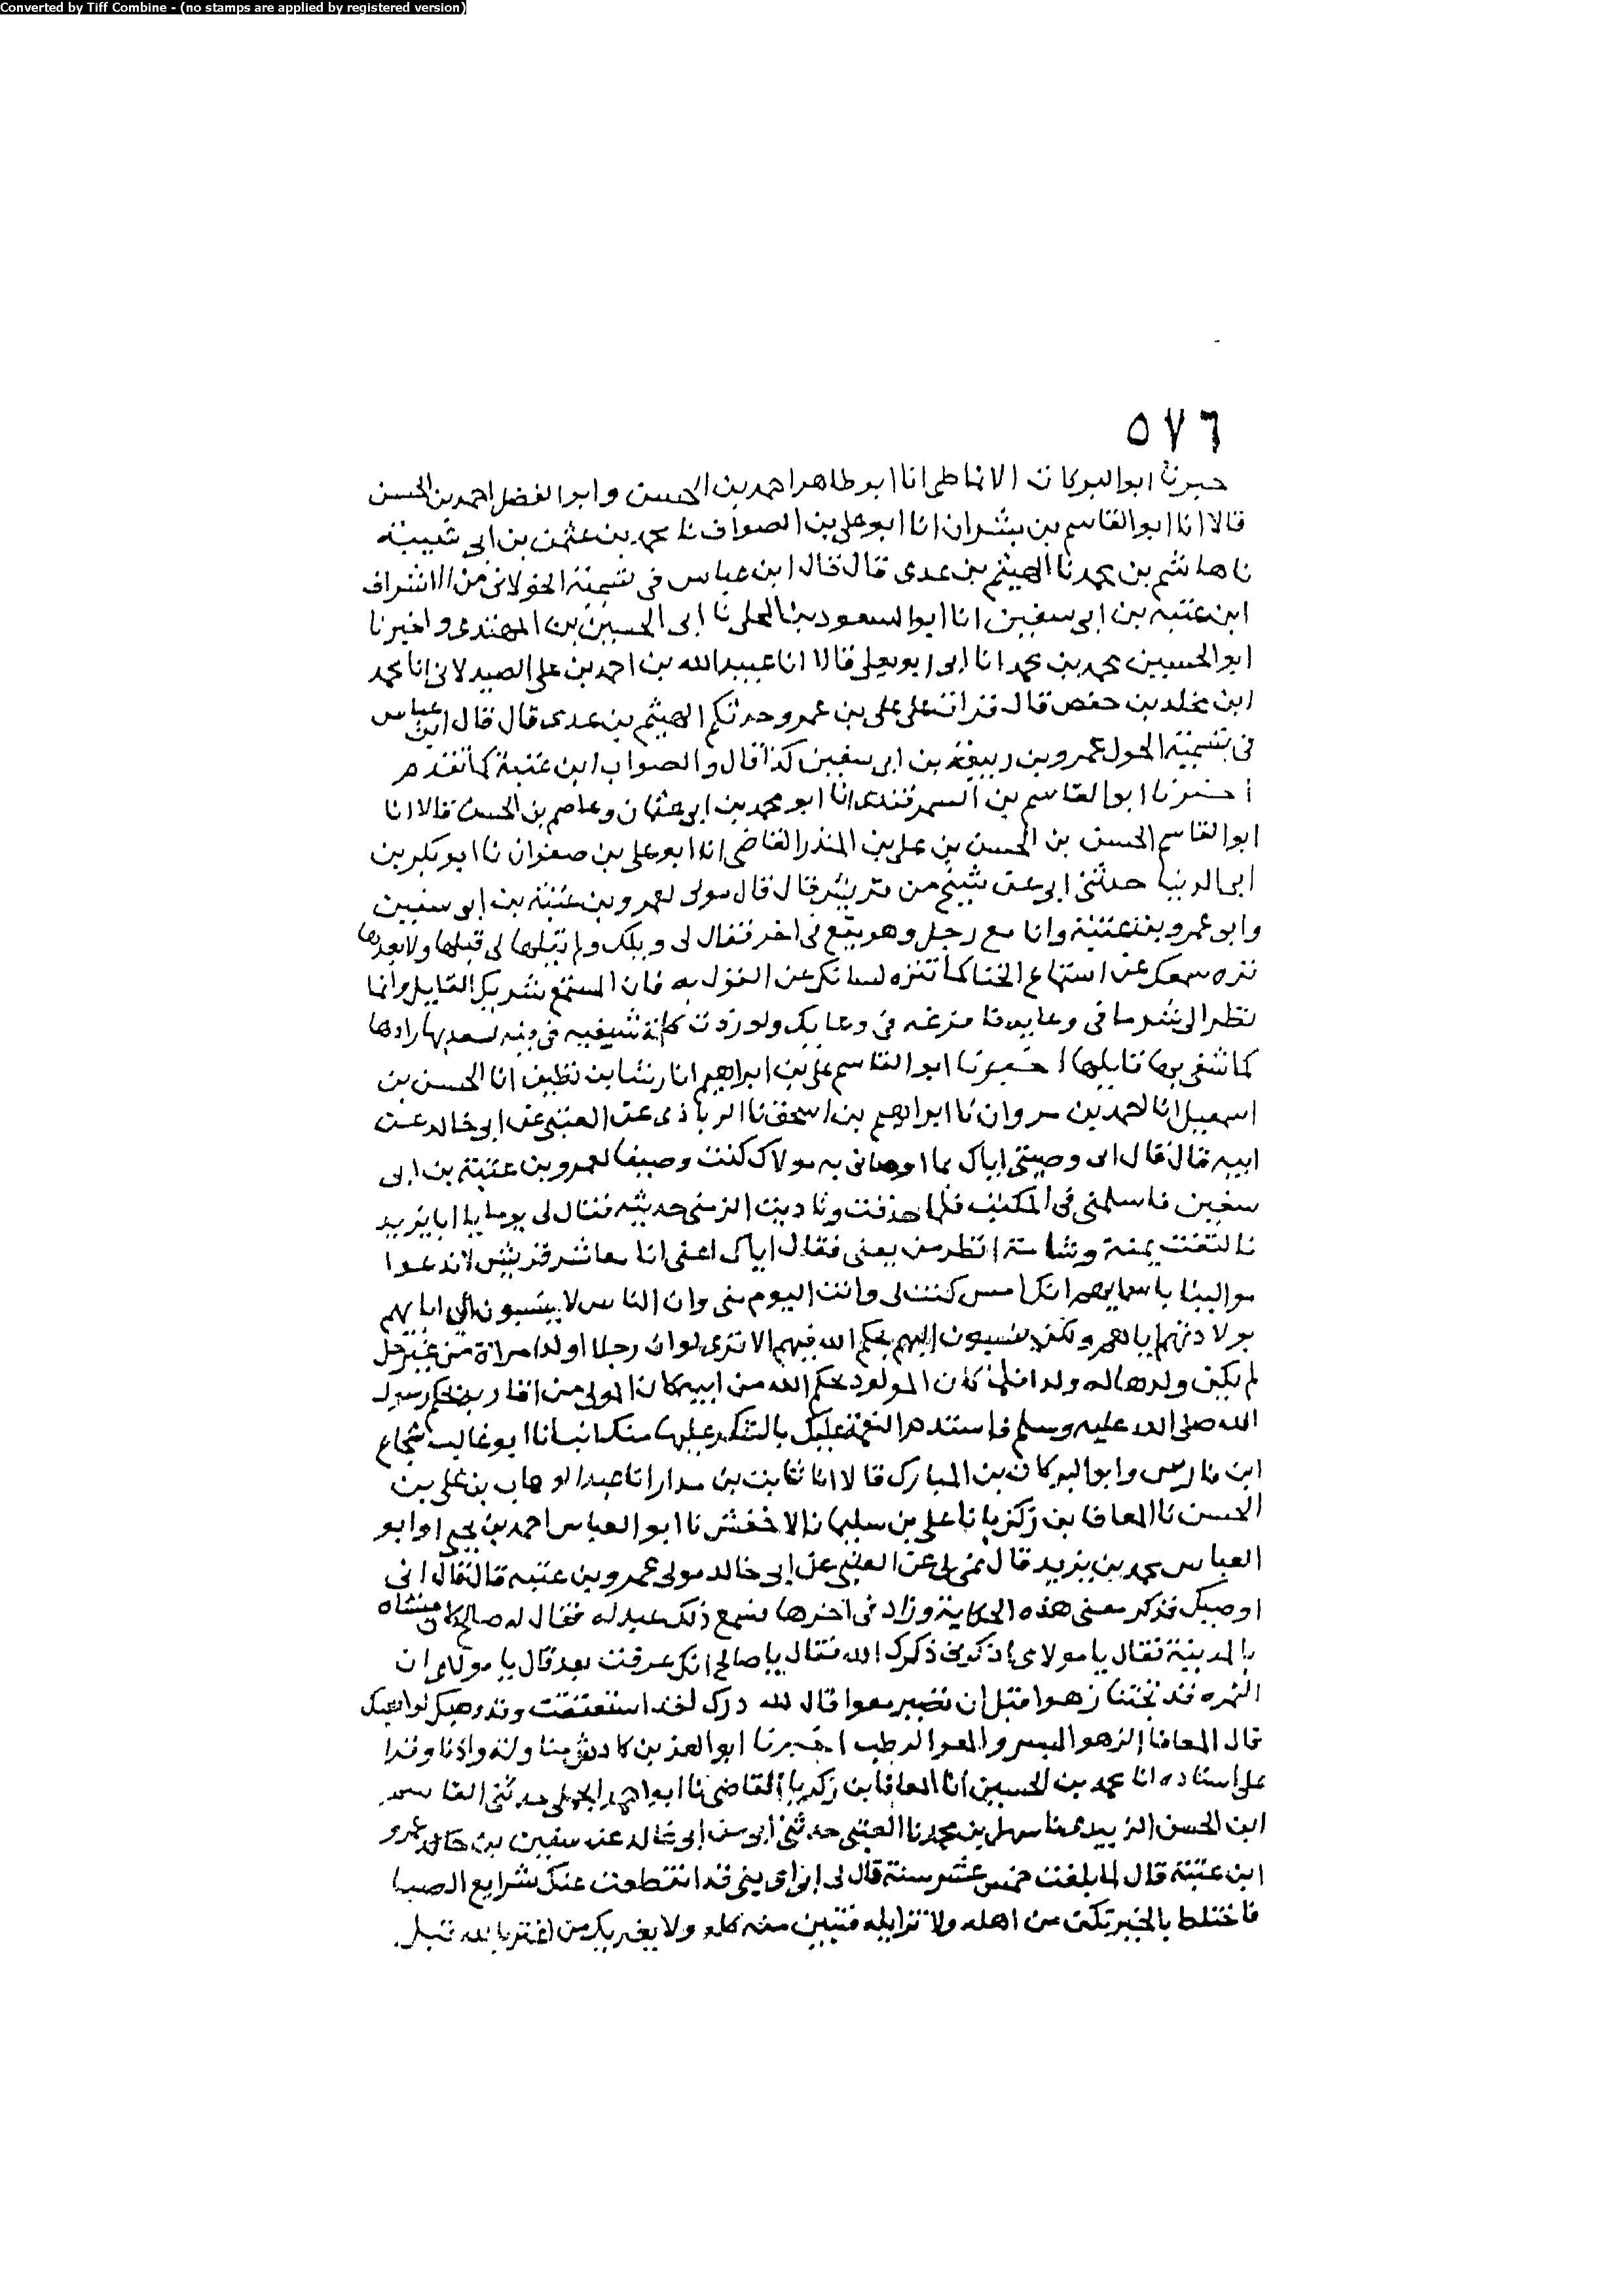 Converted by Tiff Combine - (no stamps are applied by registered version)
٥٧٦
خبرنا ابو البركات الانماطى انا ابو طاهر احمد بن الحسن وابو الفضل احمد بن الحسن
قالا انا ابو القاسم بن بشران انا ابو على بن الصواف نا محمد بن عثمن بن ابى شيبة
نا هاشم بن محمد نا الهيثم بن عدى قال قال ابن عباس فى تسمية الحولان من الاشراف
ابن عتبه بن ابى سفين انا ابو السعود بن المحلى نا ابى الحسين بن المهتدى واخبرنا
ابو الحسين محمد بن محمد انا ابى ابو يعلى قالا انا عبيد الله بن احمد بن على الصيدلانى انا محمد
ابن مخلد بن حفص قال قرات على على بن عمرو حدثكم الهيثم بن عدى قال قال ابن عباس
فى تسمية الحول عمرو بن ربيعة بن ابى سفين كذا قال والصواب ابن عتبة كما تقدم
أخبرنا ابو القاسم بن السمرقندى انا ابو محمد بن ابى عثمان وعاصم بن الحسن قالا انا
ابو القاسم الحسن بن الحسن بن على بن المنذر القاضى انا ابو على بن صفوان نا ابو بكر بن
ابى الدنيا حدثنى ابى عن شيخ من قريش قال قال مولى لعمرو بن عتبة بن ابى سفين
وابو عمرو بن عتبة وانا مع رجل وهو يقع فى اخر فقال لى ويلك ولم تقلها لى قبلها ولا بعدها
نزه سمعك عن استماع الخنا كما تنزه لسانك عن القول به فان المستمع شريك القايل وانما
نظر الى شر ما فى وعايه فافرغه فى وعايك ولو ردت كلمة سفيه فى فيه لسعد بها رادها
كما شقى بها قايلها اخبرنا ابو القاسم على بن ابراهيم انا رشا بن نظيف انا الحسن بن
اسمعيل انا احمد بن مروان نا ابراهيم بن اسحق نا الرياذى عن العتبى عن ابى خالد عن
ابيه قال قال ابى وصيتى اياك بما اوصانى به مولاك كنت وصيفا لعمرو بن عتبة بن ابى
سفين فاسلمنى فى المكتب فلما حذقت وتادبت الزمنى خدمته فقال لى يوما يا ابا يزيد
فالتفت يمنة وشامة انظر من يعنى فقال اياك اعنى انا معاشر قريش لا ندعوا
موالينا باسمايهم انك امس كنت لى وانت اليوم منى وان الناس لا ينسبون الى ابايهم
بولادتهم اياهم ولكن ينسبون اليهم بحكم الله فيهم الا ترى لو ان رجلا اولد امراة من غير حل
لم يكن ولدها له ولدا فلما كان المولود بحكم الله من ابيه كان المولى من اقاربه بحكم رسول
الله صلى الله عليه وسلم فاستدم النعمة عليك بالشكر عليها منك انبانا ابو غالب شجاع
ابن فارس وابو البركات بن المبارك قالا انا ثابت بن بندار انا عبد الوهاب بن على بن
الحسن نا المعافا بن زكريا نا على بن سليمان الاخفش نا ابو العباس احمد بن يحيى وابو
العباس محمد بن يزيد قال نمى لى عن العتبى عن ابى خالد مولى عمرو بن عتبه قال قال انى
اوصيك فذكر معنى هذه الحكاية وزاد فى اخرها فسمع ذلك عبد له فقال له صالح كان منشاه
بالمدينة فقال يا مولاى اذكرنى ذكرك الله فقال يا صالح انك عرفت بعد قال يا مولاى ان
الثمره قد تجتنا زهوا قبل ان تصير معوا قال لله درك لقد استعتقت وقد وهبتك لواهبك
قال المعافا الزهو البسر والمعو الرطب اخبرنا ابو العز بن كادش مناولة واذنا وقرا
على اسناده انا محمد بن الحسين انا المعافا بن زكريا القاضى نا ابو احمد الجهلى حدثنى القاسم
ابن الحسن الزبيدى نا سهل بن محمد نا العتبى حدثنى ابى عن ابى خالد عن سفين بن خالد عمرو
ابن عتبة قال لما بلغت خمس عشرة سنة قال لى ابى اى بنى قد انقطعت عنك شرايع الصبا
فاختلط بالخير تكن من اهله ولا تزايله فتبين منه كله ولا يغرنك من اغتر بالله قبل